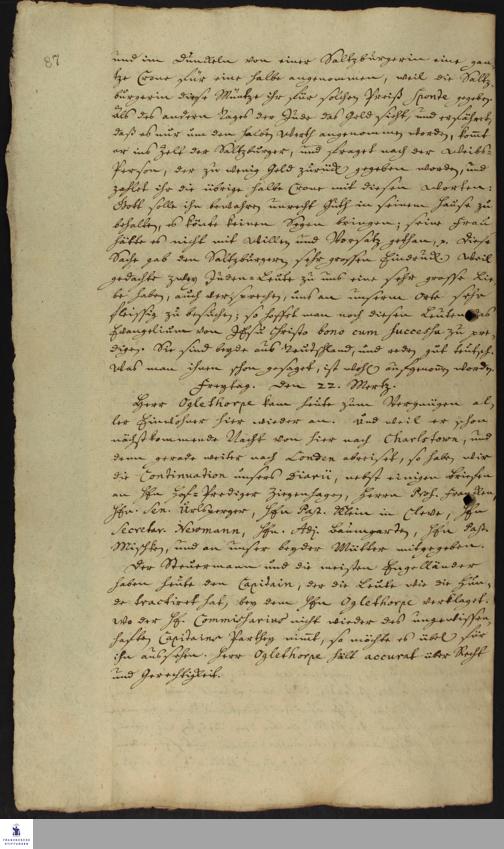 87
und im Dunckeln von einer Saltzburgerin eine gan-
tze Crone für eine halbe angenommen, weil die Saltz-
burgerin diese Müntze ihr für solchen Preiß sponte gegeben.
Als des andern Tages der Jude das Geld sieht, und erfähret,
daß es nur um den halben Werth angenommen worden, kommt
er ins Zelt der Saltzburger, und fraget nach der Weibs-
Person, der zu wenig Geld zurück gegeben worden, und
zahlet ihr die übrige halbe Crone mit diesen Worten:
Gott solle ihn bewahren unrecht Guth in seinem Hause zu
behalten, es könte keinen Segen bringen; seine Frau
hätte es nicht mit Willen und Vorsatz gethan, Diese
Sache gab den Saltzburgern sehr grossen Eindruck. Weil
gedachte zwey Juden-Leute zu uns eine sehr grosse Lie-
be haben, auch versprechen, uns an unserm Orte sehr
fleissig zu besuchen; so hoffet man noch diesen Leuten das
Evangelium von JEsu Christo bono cum successu zu pre-
digen. Sie sind beyde aus Teutschland, und reden gut teutsch.
Was man ihnen schon gesaget, ist wohl aufgenommen worden.
Freytag. Den 22. Mertz.
Herr Oglethorpe kam heute zum Vergnügen al-
ler Einwohner hier wieder an. Und weil er schon
nächstkommende Nacht von hier nach Charlstown, und
denn gerade weiter nach Londen abreiset, so haben wir
die Continuation unsers Diarii, nebst einigen Briefen
an Hfn Hof-Prediger Ziegenhagen, Herrn Prof. Francken,
Hfn. Sen. Urlsperger, Hfn Past. Klein in Cleve, Hfn
Secretar. Newmann, Hfn. Adj. Baumgarten, Hfn Past.
Mischken, und an unser beyder Mütter mitgegeben.
Der Steuermann und die meisten Engelländer
haben heute den Capitain, der die Leute wie die Hun-
de tractiret hat, bey dem Hfn Oglethorpe verklaget.
Wo der Hf. Commissarius nicht wieder des ungewissen-
haften Capitains Parthey nimt, so möchte es übel für
ihn aussehen. Herr Oglethorpe hält accurat über Recht
und Gerechtigkeit.
FRANCKESCHE
STIFTUNGEN